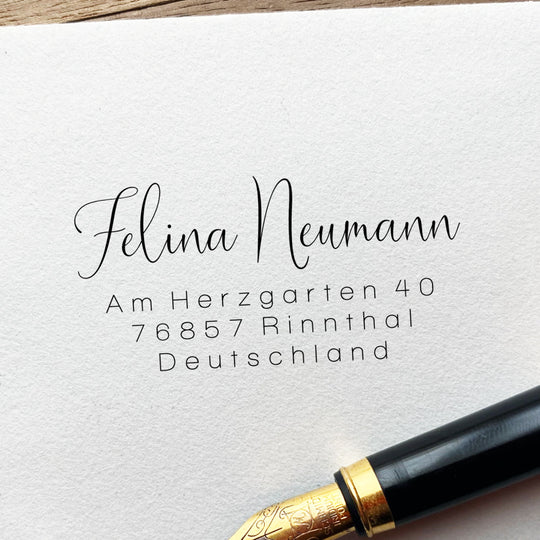 Felina Neumann
Am Herzgarten 40
76857 Rinnthal
Deutschland